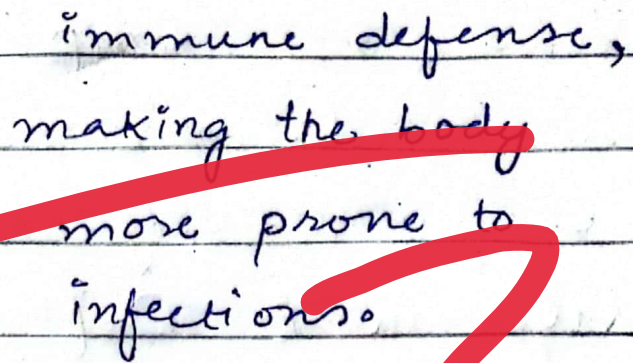 immune defense,
making the body
more prone to
infections.